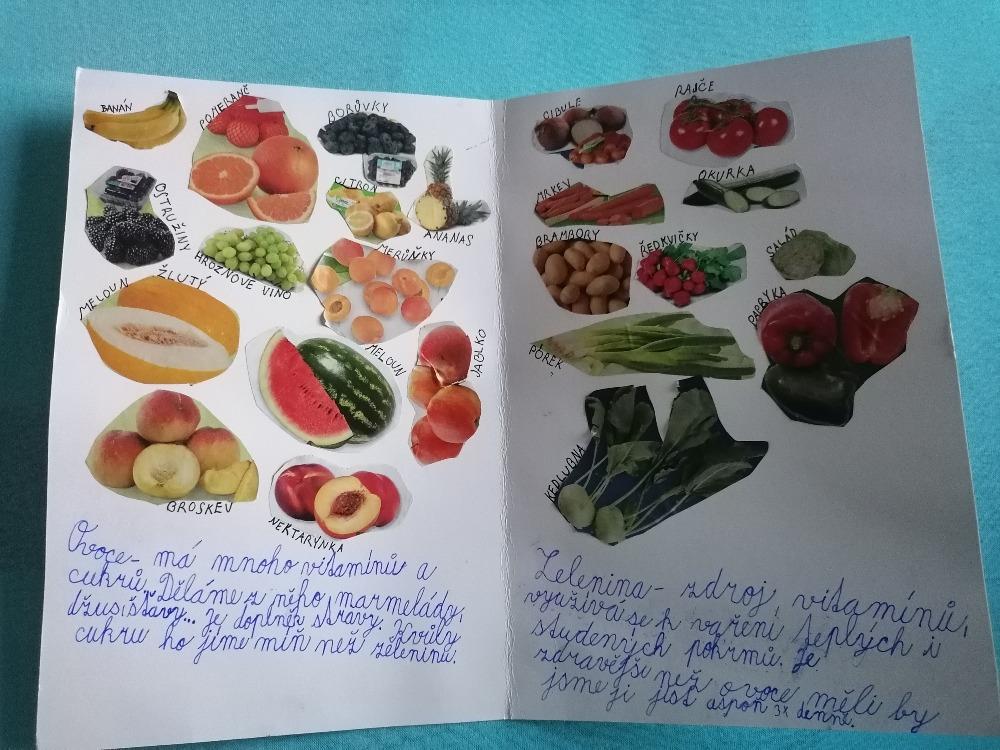 BANÁN
POMERANČ
BORŮVKY
OSTRUŽINY
CITRON
ANANAS
HROZNOVÉ VÍNO
MERUŇKY
MELOUN ŽLUTÝ
MELOUN
JABLKO
BROSKEV
NEKTARYNKA
Ovoce - má mnoho vitamínů a
cukrů. Děláme z něho marmelády,
džusi, šťávy... Je doplněk stravy. Kvůly
cukru ho jíme míň než zeleninu.
CIBULE
RAJČE
MRKEV
OKURKA
BRAMBORY
ŘEDKVIČKY
SALÁD
PAPRYKA
PÓREK
KEDLUBNA
Zelenina - zdroj vitamínů,
využívá se k vaření teplých i
studených pokrmů. Je
zdravější než ovoce měli by
jsme ji jíst aspoň 3x denně.